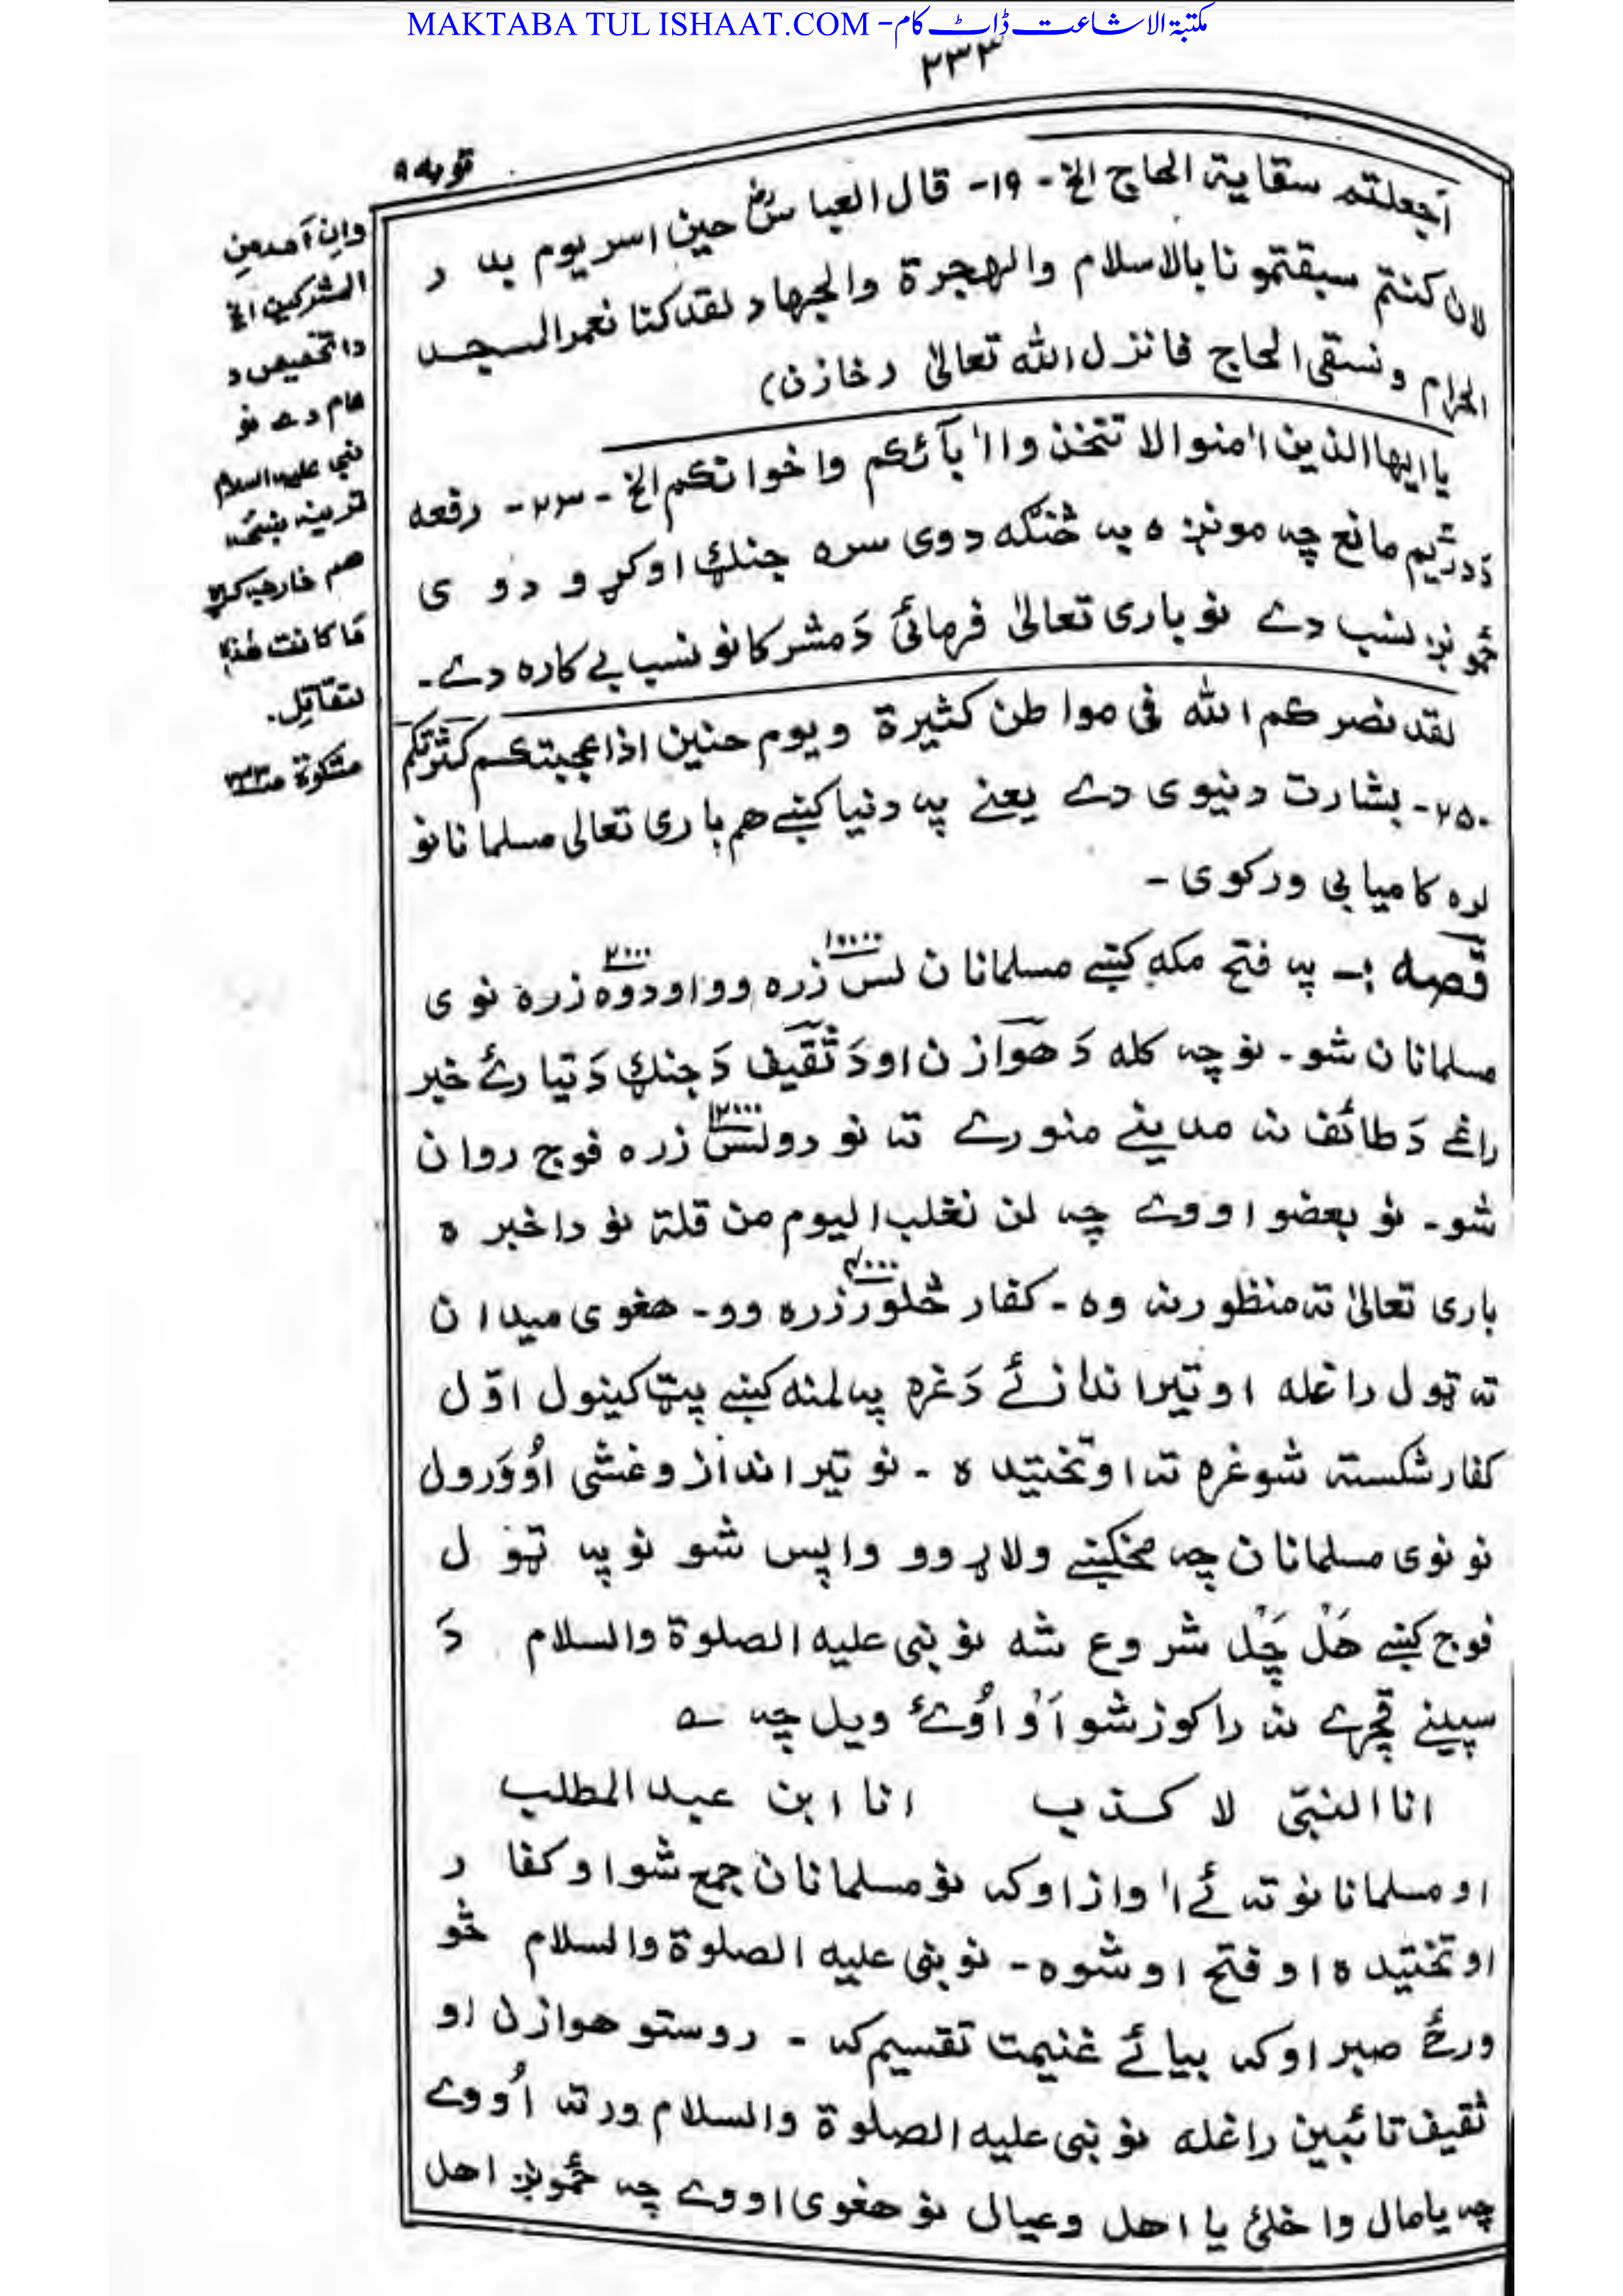 MAKTABA TUL ISHAAT.COM - مکتبۃ الاشاعت ڈاٹ کام
۲۳۳
توبه ۹
اَجعلتم سقایة الحاج الخ - ۱۹- قال العباسؓ حین اسر یوم بدر
لان کنتم سبقتمونا بالاسلام والهجرة والجهاد لقد کنا نعمر المسجد
الحرام ونسقی الحاج فانزل الله تعالیٰ (خازن)
یا ایها الذین اٰمنوا لا تتخذوا اٰبآئکم واخوانکم الخ - ۲۳- دفعه
دَ دریم مانع چه مونږه به څنګه دوی سره جنګ اوکړو دوی
ځمونږ نسب دے نو باری تعالیٰ فرمائی دَ مشرکانو نسب بے کاره دے۔
لقد نصرکم الله فی مواطن کثیرة ویوم حنین اذ اعجبتکم کثرتکم
۲۵- بشارت دنیوی دے یعنے په دنیا کښے هم باری تعالی مسلمانانو
لره کامیابی ورکوی -
قصه :- په فتح مکه کښے مسلمانان لس ۱۰۰۰۰ زره وو او دوه ۲۰۰۰ زره نوی
مسلمانان شو - نو چه کله دَ هوازن او دَ ثقیف دَ جنګ دَ تیارئ خبر
راغے دَ طائف نه مدینے منورے ته نو دولس ۱۲۰۰۰ زره فوج روان
شو - نو بعضو اووے چه لن نغلب الیوم من قلة نو دا خبره
باری تعالیٰ ته منظور نه وه - کفار څلور ۴۰۰۰ زره وو - هغوی میدان
ته ټول راغله او تیر اندازئے دَ غره په لمنه کښے پټ کینول اوّل
کفار شکسته شو غره ته اوتختیده - نو تیر انداز و غشی اُووَرول
نو نوی مسلمانان چه مخکښے ولاړ وو واپس شو نو په ټول
فوج کښے هَل چَل شروع شه نو نبی علیه الصلوة والسلام دَ
سپینے قچرے نه راکوز شو اَو اُوئے ویل چه ؎
انا النبیّ لا کذب    انا ابن عبد المطلب
او مسلمانانو ته ئے اٰواز اوکه نو مسلمانان جمع شو او کفار
اوتختیده او فتح اوشوه - نو نبی علیه الصلوة والسلام څو
ورځے صبر اوکه بیائے غنیمت تقسیم که - روستو هوازن او
ثقیف تائبین راغله نو نبی علیه الصلوة والسلام ورته اُووے
چه یا مال واخلئ یا اهل وعیال نو هغوی اووے چه ځمونږ اهل
وان اَحد من
المشرکین الخ
دا تخصیص د
عام دے نو
نبی علیه السلام
قرینه
هم خارجه کړه
مَا کانت هٰذه
لتقاتِل.
مشکوة